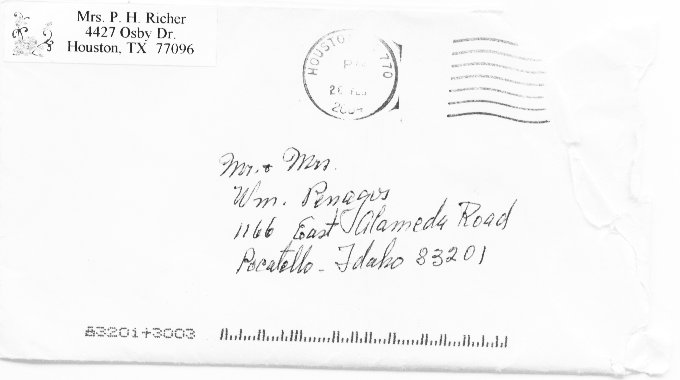 Mrs. P. H. Richer
4427 Osby Dr.
Houston, TX 77096
HOUSTON 770
PM
2004
Mr. & Mrs.
Wm. Penagos
1166 East Alameda Road
Pocatello - Idaho 83201
83201+3003